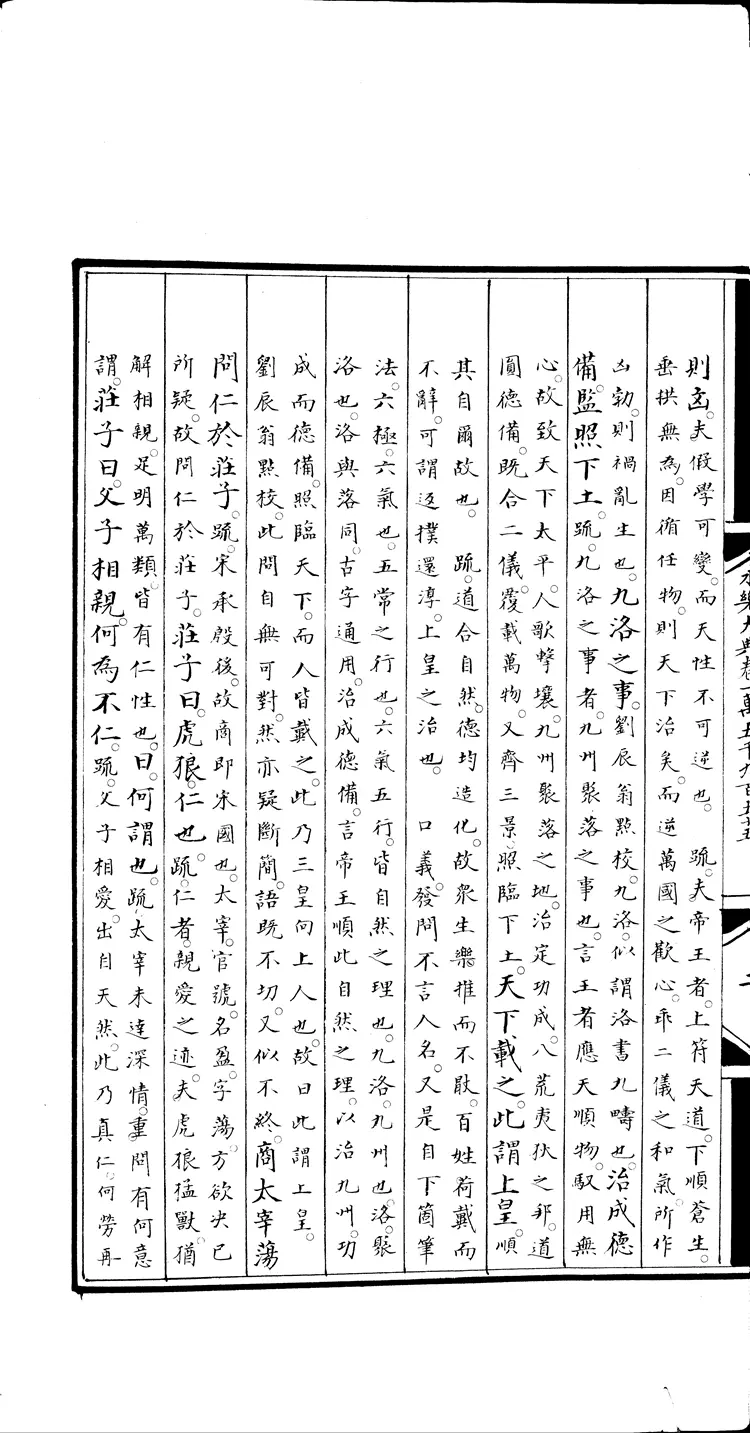 永樂大典卷一萬五千九百五十五
二
則凶。夫假學可變。而天性不可逆也。　疏。夫帝王者。上符天道。下順蒼生。
垂拱無為。因循任物。則天下治矣。而逆萬國之歡心。乖二儀之和氣。所作
凶勃。則禍亂生也。九洛之事。劉辰翁點校。九洛。似謂洛書九疇也。治成德
備。監照下土。疏。九洛之事者。九州聚落之事也。言王者應天順物。馭用無
心。故致天下太平。人歌擊壤。九州聚落之地。治定功成。八荒夷狄之邦。道
圓德備。既合二儀。覆載萬物。又齊三景。照臨下土。天下載之。此謂上皇。順
其自爾故也。　疏。道合自然。德均造化。故衆生樂推而不厭。百姓荷戴而
不辭。可謂返撲還淳。上皇之治也。　口義。發問不言人名。又是自下箇筆
法。六極。六氣也。五常之行也。六氣五行。皆自然之理也。九洛。九州也。洛。聚
洛也。洛與落同。古字通用。治成德備。言帝王順此自然之理。以治九州。功
成而德備。照臨天下。而人皆戴之。此乃三皇向上人也。故曰此謂上皇。
劉辰翁點校。此問自無可對。然亦疑斷簡。語既不切。又似不終。商太宰蕩
問仁於莊子。疏。宋承殷後。故商即宋國也。太宰。官號。名盈。字蕩。方欲决已
所疑。故問仁於莊子。莊子曰。虎狼。仁也。疏。仁者。親愛之迹。夫虎狼猛獸。猶
解相親。足明萬類。皆有仁性也。曰。何謂也。疏。太宰未達深情。重問有何意
謂。莊子曰。父子相親。何為不仁。疏。父子相愛。出自天然。此乃真仁。何勞再